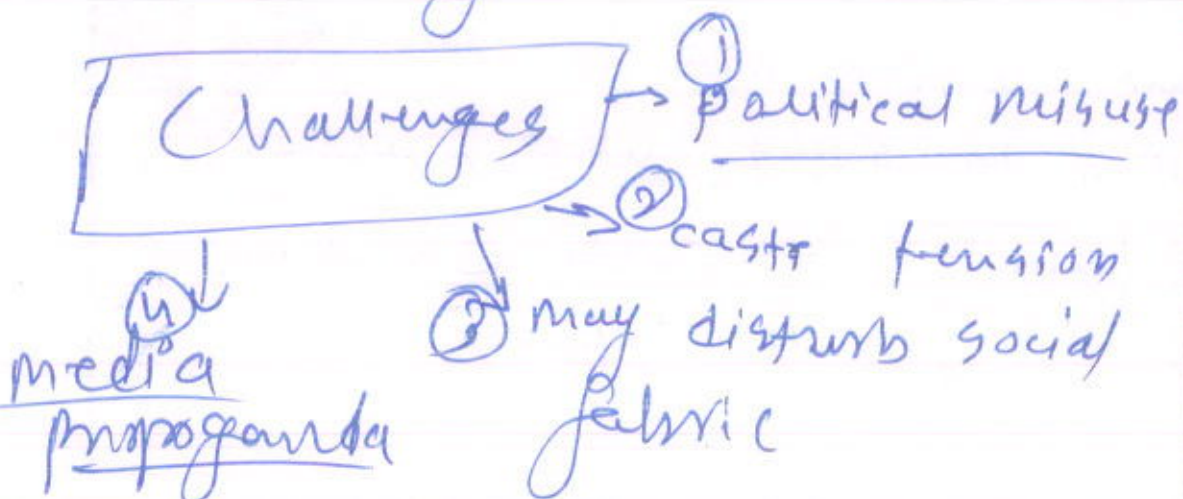 Challenges
① political misuse
② caste tension
③ may disturb social
fabric
④ media
propoganda